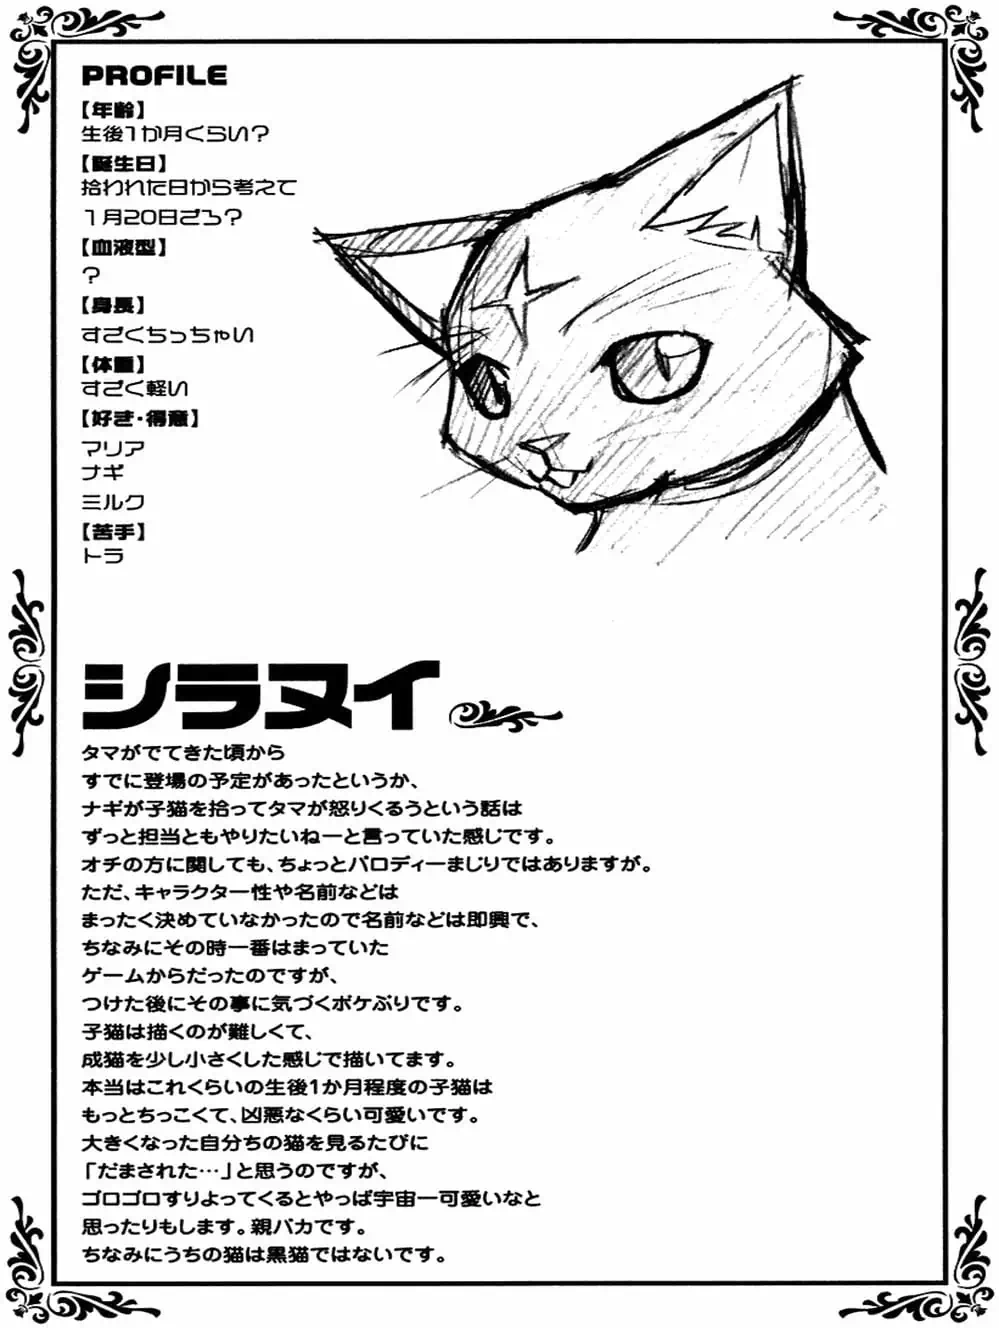 PROFILE
【年齢】
生後1か月くらい?
【誕生日】
拾われた日から考えて
1月20日ごろ?
【血液型】
?
【身長】
すごくちっちゃい
【体重】
すごく軽い
【好き・得意】
マリア
ナギ
ミルク
【苦手】
トラ
シラヌイ
タマがでてきた頃から
すでに登場の予定があったというか、
ナギが子猫を拾ってタマが怒りくるうという話は
ずっと担当ともやりたいねーと言っていた感じです。
オチの方に関しても、ちょっとパロディーまじりではありますが。
ただ、キャラクター性や名前などは
まったく決めていなかったので名前などは即興で、
ちなみにその時一番はまっていた
ゲームからだったのですが、
つけた後にその事に気づくボケぶりです。
子猫は描くのが難しくて、
成猫を少し小さくした感じで描いてます。
本当はこれくらいの生後1か月程度の子猫は
もっとちっこくて、凶悪なくらい可愛いです。
大きくなった自分ちの猫を見るたびに
「だまされた…」と思うのですが、
ゴロゴロすりよってくるとやっぱ宇宙一可愛いなと
思ったりもします。親バカです。
ちなみにうちの猫は黒猫ではないです。